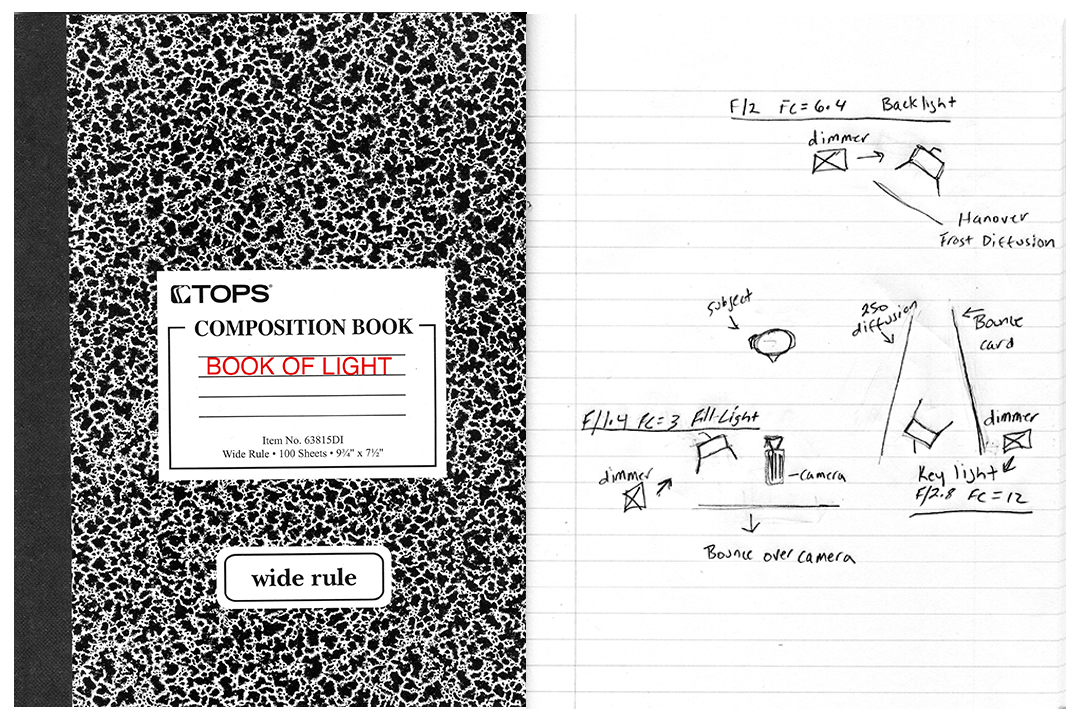 TOPS®
COMPOSITION BOOK
BOOK OF LIGHT
Item No. 63815DI
Wide Rule • 100 Sheets • 9¾" x 7½"
wide rule
F/2 FC=6.4 Backlight
dimmer
Hanover
Frost Diffusion
subject
250
diffusion
Bounce
card
F/1.4 FC=3 Fill-Light
dimmer
camera
dimmer
Key light
F/2.8 FC=12
Bounce over camera